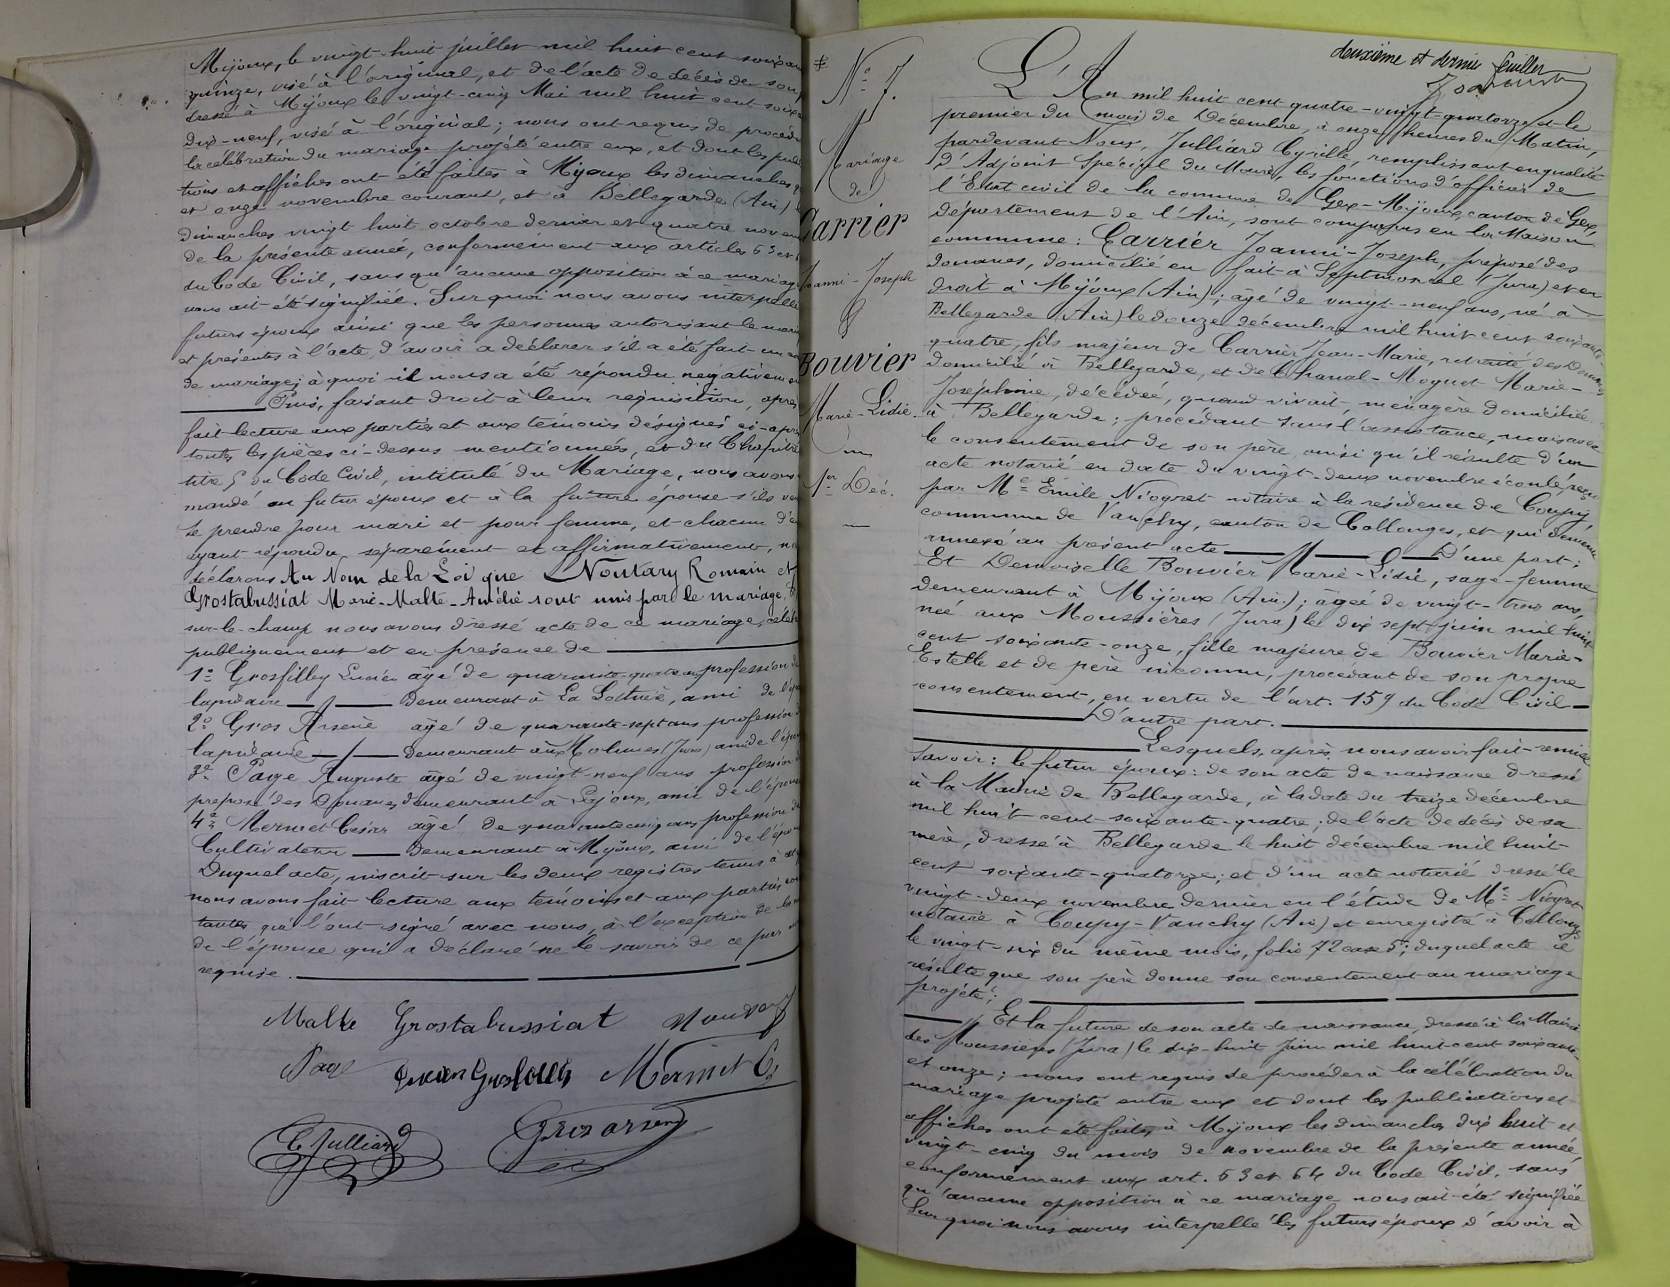 Mijoux, le vingt-huit juillet mil huit cent soixante
quinze, visé à l'original, et de l'acte de décès de son
dressé à Mijoux le vingt-cinq Mai mil huit cent soixante
dix-neuf, visé à l'original; nous ont requis de procéder
la célébration du mariage projeté entre eux, et dont les publi
tions et affiches ont été faites à Mijoux les dimanches
et onze novembre courant, et à Bellegarde (Ain)
dimanches vingt huit octobre dernier et quatre novem
de la présente année, conformément aux articles 63 et
du Code Civil, sans qu'aucune opposition à ce mariage
nous ait été signifiée. Sur quoi nous avons interpellé
futurs époux ainsi que les personnes autorisant le mari
et présentes à l'acte, d'avoir à déclarer s'il a été fait un con
de mariage; à quoi il nous a été répondu négativement
Puis, faisant droit à leur réquisition, après
fait lecture aux parties et aux témoins désignés ci-après
toutes les pièces ci-dessus mentionnées, et du Chapitre
titre 5 du Code Civil, intitulé du Mariage, nous avons
mandé au futur époux et à la future épouse s'ils veu
se prendre pour mari et pour femme, et chacun d'e
ayant répondu séparément et affirmativement, no
déclarons Au Nom de la Loi que Noutary Romain et
Grostabussiat Marie-Malte-Amélie sont unis par le mariage, &
sur-le-champ nous avons dressé acte de ce mariage, célébr
publiquement et en présence de
1º Grosfilley Lucien âgé de quarante-quatre ans profession de
lapidaire demeurant à La Sottine, ami de l'ép
2º Gros Arsène âgé de quarante-sept ans profession
lapidaire demeurant aux Molunes (Jura) ami de l'époux
3º Page Auguste âgé de vingt-neuf ans profession
préposé des Douanes demeurant à Lajoux, ami de l'épouse
4º Mermet César âgé de quarante cinq ans profession de
Cultivateur demeurant à Mijoux, ami de l'épou
Duquel acte, inscrit sur les deux registres tenus à cet
nous avons fait lecture aux témoins et aux parties con
tantes qui l'ont signé avec nous, à l'exception de la m
de l'épouse qui a déclaré ne le savoir de ce par
requise.
Malte Grostabussiat Noutary
Page Lucien Grosfilley Mermet C.
C. Julliard Gros arsene
deuxième et dernier feuillet
#
Nº 7.
Mariage
de
Carrier
Joanni-Joseph
&
Bouvier
Marie-Lidie
1er Déc.
L'An mil huit cent quatre-vingt-quatorze et le
premier du mois de Décembre, à onze heures du Matin,
pardevant Nous, Julliard Cyrille, remplissant en qualité
d'Adjoint Spécial du Maire, les fonctions d'officier de
l'État civil de la commune de Gex-Mijoux, canton de Gex,
département de l'Ain, sont comparus en la Maison
commune: Carrier Joanni-Joseph, préposé des
douanes, domicilié en fait à Septmoncel (Jura) et en
droit à Mijoux (Ain); âgé de vingt-neuf ans, né à
Bellegarde (Ain) le douze décembre mil huit cent soixante
quatre, fils majeur de Carrier Jean-Marie, retraité des Douanes
domicilié à Bellegarde, et de Chanal-Moguet Marie-
Josephine, décédée, quand vivait, ménagère domiciliée
à Bellegarde; procédant sans l'assistance, mais avec
le consentement de son père ainsi qu'il résulte d'un
acte notarié en date du vingt-deux novembre écoulé, reçu
par Me Émile Niogret notaire à la résidence de Coupy
commune de Vanchy, canton de Collonges, et qui demeure
annexé au présent acte D'une part;
Et Demoiselle Bouvier Marie-Lidie, sage-femme
demeurant à Mijoux (Ain); âgée de vingt-trois ans,
née aux Moussières (Jura) le dix sept juin mil huit
cent soixante-onze, fille majeure de Bouvier Marie-
Estelle et de père inconnu, procédant de son propre
consentement, en vertu de l'art. 159 du Code Civil
D'autre part.
Lesquels, après nous avoir fait remise
savoir: le futur époux: de son acte de naissance dressé
à la Mairie de Bellegarde, à la date du treize décembre
mil huit cent soixante-quatre; de l'acte de décès de sa
mère, dressé à Bellegarde le huit décembre mil huit-
cent soixante-quatorze; et d'un acte notarié dressé le
vingt-deux novembre dernier en l'étude de Me Niogret
notaire à Coupy-Vanchy (Ain) et enregistré à Collonges
le vingt-six du même mois, folio 72 case 5; duquel acte il
résulte que son père donne son consentement au mariage
projeté;
Et la future de son acte de naissance, dressé à la Mairie
des Moussières (Jura) le dix-huit Juin mil huit cent soixante
et onze; nous ont requis de procéder à la célébration du
mariage projeté entre eux et dont les publications et
affiches ont été faites à Mijoux les dimanches dix huit et
vingt-cinq du mois de novembre de la présente année,
conformément aux art. 63 et 64 du Code Civil, sans
qu'aucune opposition à ce mariage nous ait été signifiée
Sur quoi nous avons interpellé les futurs époux d'avoir à